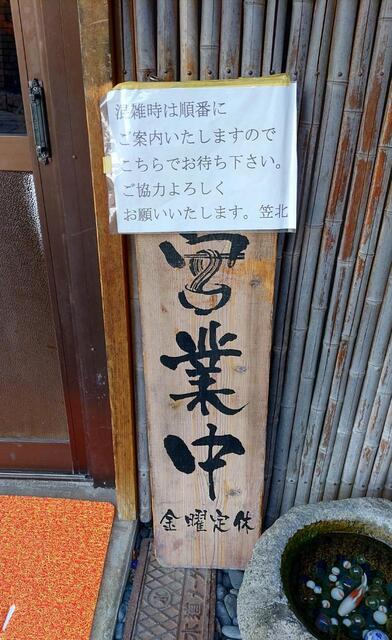 混雑時は順番に
ご案内いたしますので
こちらでお待ち下さい。
ご協力よろしく
お願いいたします。笠北
営業中
金曜定休